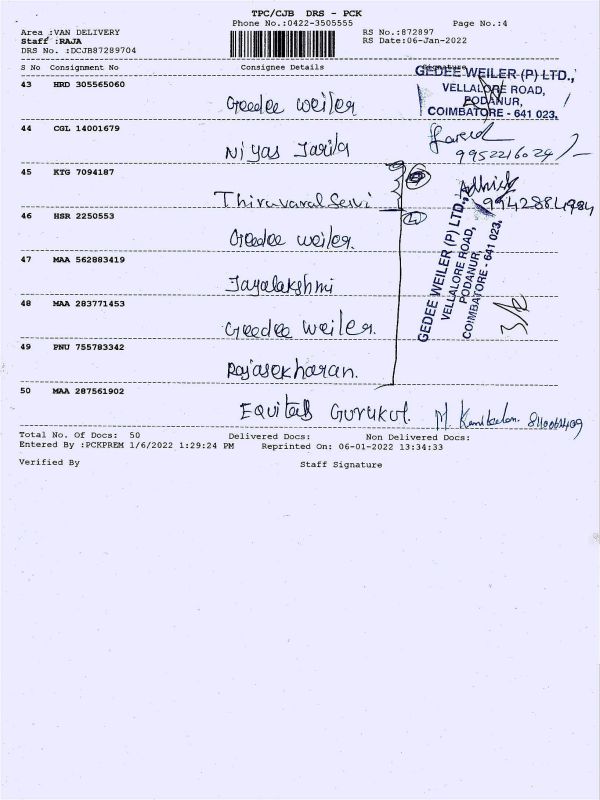 TPC/CJB DRS - PCK
Phone No.:0422-3505555 Page No.:4
Area :VAN DELIVERY RS No.:872897
Staff :RAJA RS Date:06-Jan-2022
DRS No. :DCJB87289704
S No Consignment No Consignee Details Signature
43 HRD 305565060 Geedee weiler
GEDEE WEILER (P) LTD.,
VELLALORE ROAD,
PODANUR,
COIMBATORE - 641 023.
44 CGL 14001679 Niyas Jarila
9952216024
45 KTG 7094187 Thiruvaral Selvi
9942884984
46 HSR 2250553 Geedee weiler.
GEDEE WEILER (P) LTD.,
VELLALORE ROAD,
PODANUR,
COIMBATORE - 641 023.
47 MAA 562883419 Jayalakshmi
48 MAA 283771453 Geedee weiler.
49 PNU 755783342 Rajasekharan.
50 MAA 287561902 Equitas Gurukul. M.
Total No. Of Docs: 50 Delivered Docs: Non Delivered Docs:
Entered By :PCKPREM 1/6/2022 1:29:24 PM Reprinted On: 06-01-2022 13:34:33
Verified By Staff Signature